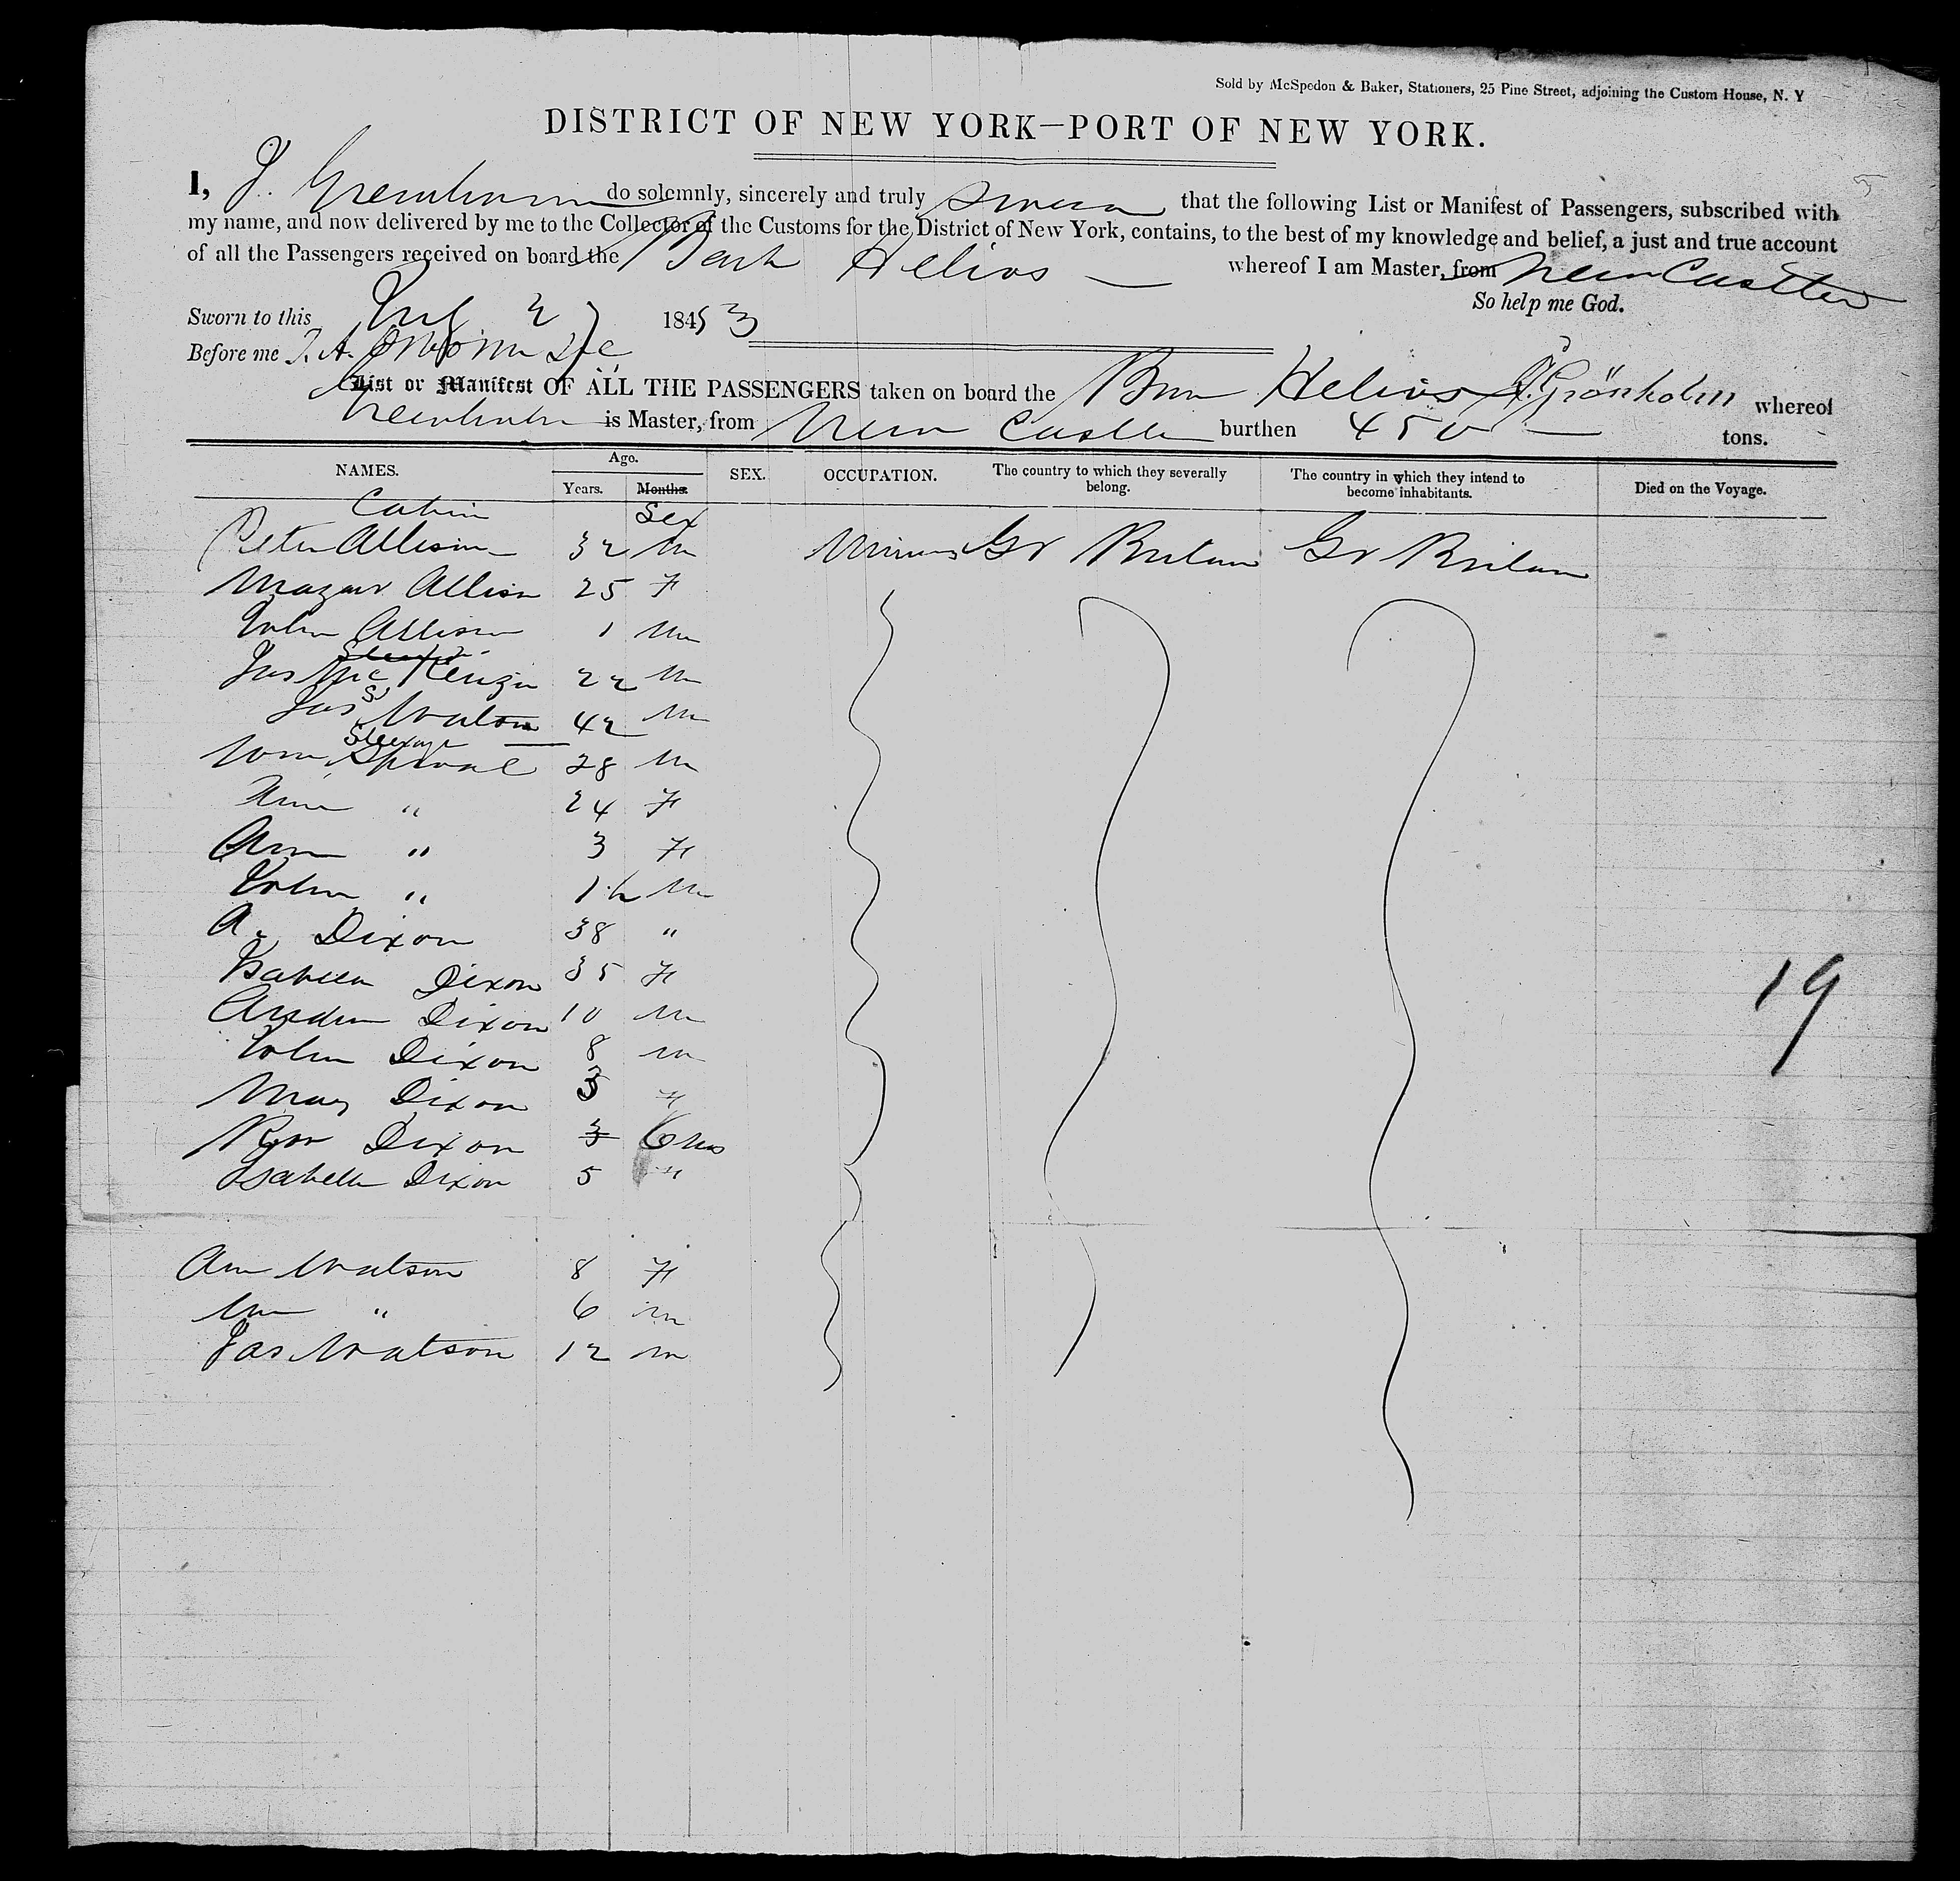 Sold by McSpedon & Baker, Stationers, 25 Pine Street, adjoining the Custom House, N. Y
DISTRICT OF NEW YORK—PORT OF NEW YORK.
I, J. do solemnly, sincerely and truly swear that the following List or Manifest of Passengers, subscribed with
my name, and now delivered by me to the Collector of the Customs for the District of New York, contains, to the best of my knowledge and belief, a just and true account
of all the Passengers received on board the Bark Helios — whereof I am Master, from New Castle
So help me God.
Sworn to this 27 1853
Before me
List or Manifest OF ALL THE PASSENGERS taken on board the Helios Grönholm whereof
is Master, from New Castle burthen 450 — tons.
NAMES. Age. Years. Months. SEX. OCCUPATION. The country to which they severally belong. The country in which they intend to become inhabitants. Died on the Voyage.
Cabin Sex
Peter Allison 32 M Gr Britain Gr Britain
Allison 25 F
John Allison 1 M
Jas McKenzie 22 M
Jas Watson 42 M
Steerage
Wm 28 M
" 24 F
Ann " 3 F
John " M
A. Dixon 38 "
Isabella Dixon 35 F
Andrew Dixon 10 M
John Dixon 8 M
Mary Dixon 3 F
Dixon 3 6 mos
Isabella Dixon 5 F
19
Ann Watson 8 F
Wm " 6 M
Jas Watson 12 M